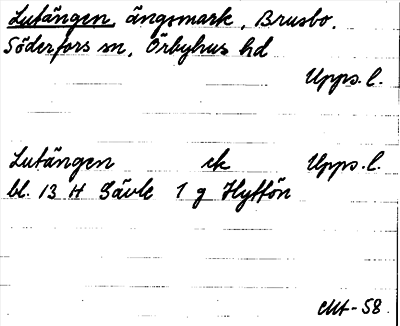 Lutängen, ängsmark, Brusbo,
Söderfors sn, Örbyhus hd
Upps. l.
Lutängen ek Upps. l.
bl. 13 H Gävle 1 g Hyttön
-58